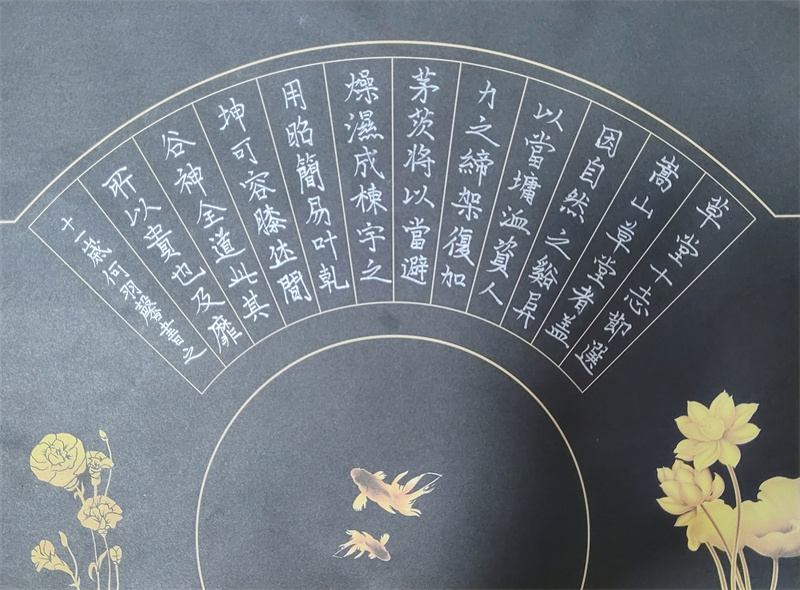 草堂十志節選
嵩山草堂者蓋
因自然之谿昇
以當墉洫資人
力之締架復加
茅茨將以當避
燥濕成棟宇之
用昭簡易叶乾
坤可容膝休閒
谷神全道此其
所以貴也及靡
十一歲何羽馨書之